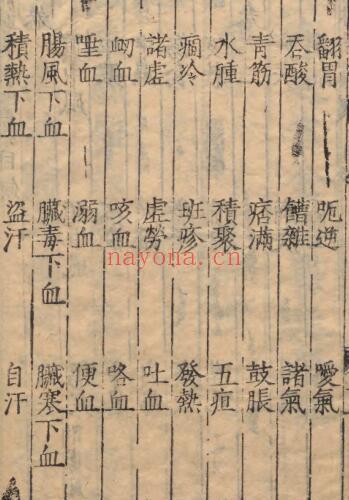 翻胃 呃逆 噯氣
吞酸 饐雜 諸氣
青筋 痞滿 鼓脹
水腫 積聚 五疸
痼冷 班疹 發熱
諸虛 虛勞 吐血
衂血 咳血 咯血
唾血 溺血 便血
腸風下血 臟毒下血 臟寒下血
積熱下血 盜汗 自汗
nayona.cn